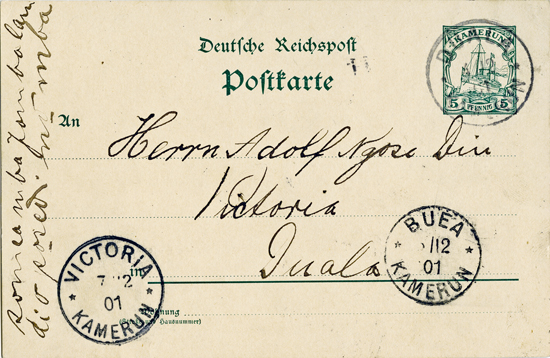 Deutsche Reichspost
Postkarte
KAMERUN
5 PFENNIG 5
An
Herrn Adolf Ngoso Din
Victoria
Duala
in
Wohnung
(Straße und Hausnummer)
VICTORIA
7 12
01
KAMERUN
BUEA
/12
01
KAMERUN